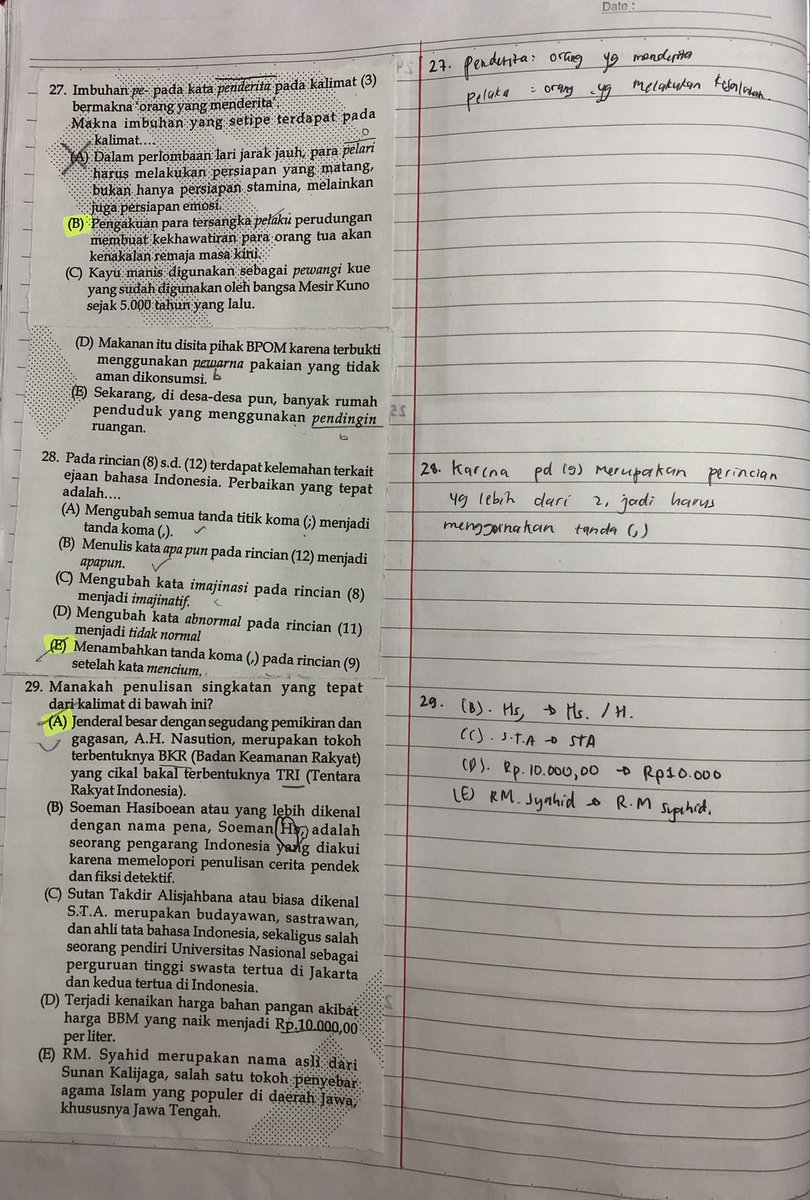 Date :
27. Imbuhan pe- pada kata penderita pada kalimat (3)
bermakna 'orang yang menderita'.
Makna imbuhan yang setipe terdapat pada
kalimat....
(A) Dalam perlombaan lari jarak jauh, para pelari
harus melakukan persiapan yang matang,
bukan hanya persiapan stamina, melainkan
juga persiapan emosi.
(B) Pengakuan para tersangka pelaku perudungan
membuat kekhawatiran para orang tua akan
kenakalan remaja masa kini.
(C) Kayu manis digunakan sebagai pewangi kue
yang sudah digunakan oleh bangsa Mesir Kuno
sejak 5.000 tahun yang lalu.
(D) Makanan itu disita pihak BPOM karena terbukti
menggunakan pewarna pakaian yang tidak
aman dikonsumsi.
(E) Sekarang, di desa-desa pun, banyak rumah
penduduk yang menggunakan pendingin
ruangan.
28. Pada rincian (8) s.d. (12) terdapat kelemahan terkait
ejaan bahasa Indonesia. Perbaikan yang tepat
adalah....
(A) Mengubah semua tanda titik koma (;) menjadi
tanda koma (,).
(B) Menulis kata apa pun pada rincian (12) menjadi
apapun.
(C) Mengubah kata imajinasi pada rincian (8)
menjadi imajinatif.
(D) Mengubah kata abnormal pada rincian (11)
menjadi tidak normal
(E) Menambahkan tanda koma (,) pada rincian (9)
setelah kata mencium.
29. Manakah penulisan singkatan yang tepat
dari kalimat di bawah ini?
(A) Jenderal besar dengan segudang pemikiran dan
gagasan, A.H. Nasution, merupakan tokoh
terbentuknya BKR (Badan Keamanan Rakyat)
yang cikal bakal terbentuknya TRI (Tentara
Rakyat Indonesia).
(B) Soeman Hasiboean atau yang lebih dikenal
dengan nama pena, Soeman Hs, adalah
seorang pengarang Indonesia yang diakui
karena memelopori penulisan cerita pendek
dan fiksi detektif.
(C) Sutan Takdir Alisjahbana atau biasa dikenal
S.T.A. merupakan budayawan, sastrawan,
dan ahli tata bahasa Indonesia, sekaligus salah
seorang pendiri Universitas Nasional sebagai
perguruan tinggi swasta tertua di Jakarta
dan kedua tertua di Indonesia.
(D) Terjadi kenaikan harga bahan pangan akibat
harga BBM yang naik menjadi Rp.10.000,00
per liter.
(E) RM. Syahid merupakan nama asli dari
Sunan Kalijaga, salah satu tokoh penyebar
agama Islam yang populer di daerah Jawa,
khususnya Jawa Tengah.
27. Penderita : orang yg menderita
Pelaku = orang yg melakukan kesalahan.
28. Karena pd (9) merupakan perincian
yg lebih dari 2, jadi harus
menggunakan tanda (,)
29. (B). Hs, → Hs. / H.
(C). S.T.A → STA
(D). Rp. 10.000,00 → Rp10.000
(E) RM. Syahid → R.M Syahid.